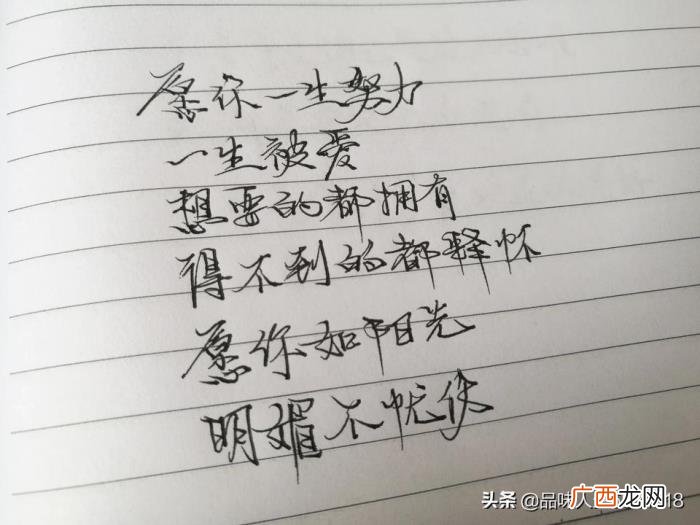 愿你一生努力
一生被爱
想要的都拥有
得不到的都释怀
愿你如阳光
明媚不忧伤
头条 @品味人
18
广西龙网